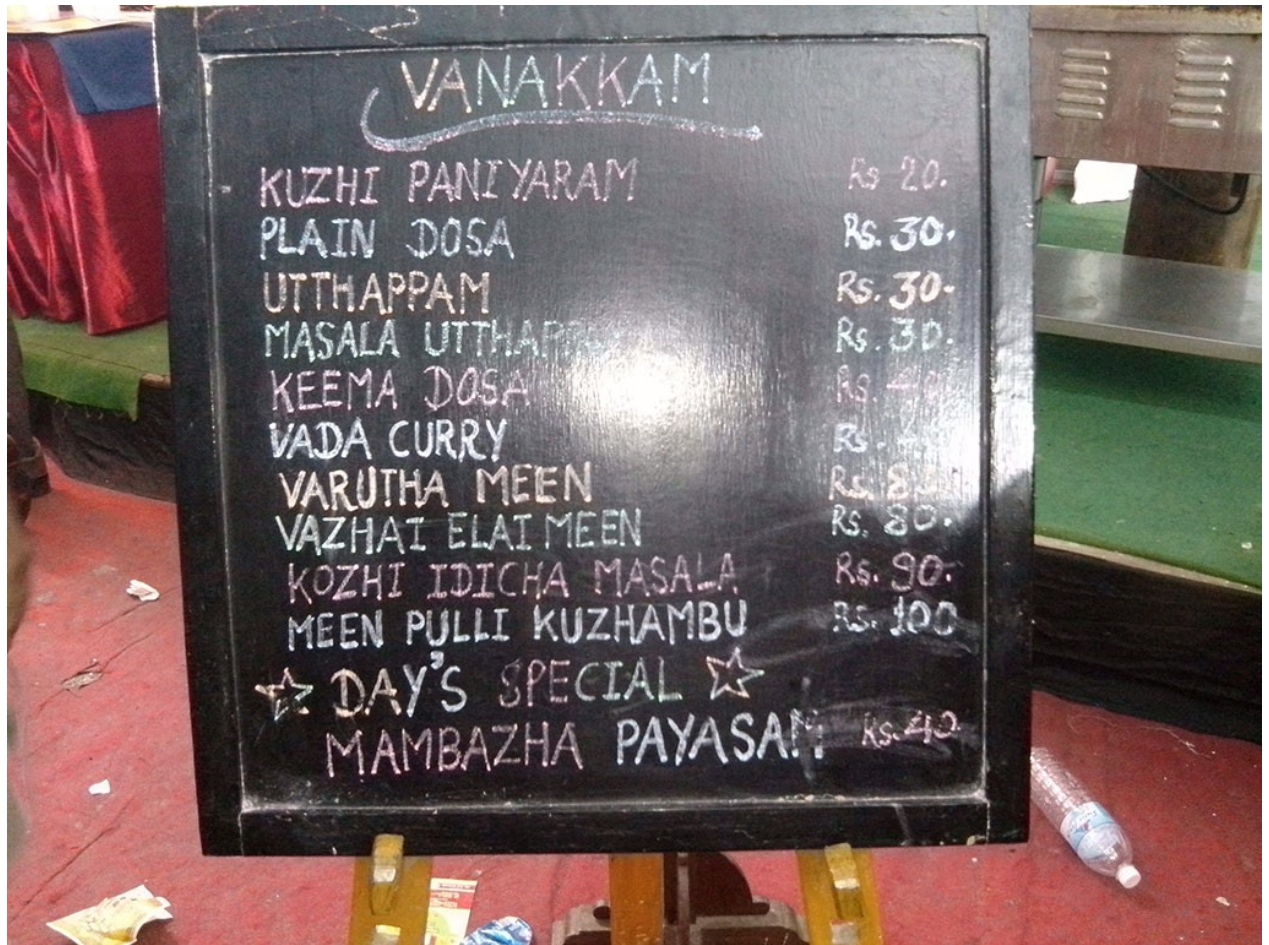 VANAKKAM
KUZHI PANIYARAM Rs 20.
PLAIN DOSA Rs. 30.
UTTHAPPAM Rs. 30.
MASALA Rs. 30.
KEEMA DOSA Rs.
VADA CURRY Rs.
VARUTHA MEEN Rs.
VAZHAI ELAI MEEN Rs. 80.
KOZHI IDICHA MASALA Rs. 90.
MEEN PULLI KUZHAMBU Rs. 100
DAY'S SPECIAL
MAMBAZHA PAYASAM Rs. 40.